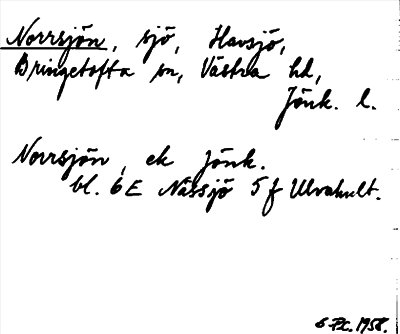 Norrsjön, sjö, Havsjö,
Bringetofta sn, Västra hd,
Jönk. l.
Norrsjön, ek Jönk.
bl. 6E Nässjö 5 f Ulvahult.
6 1958.